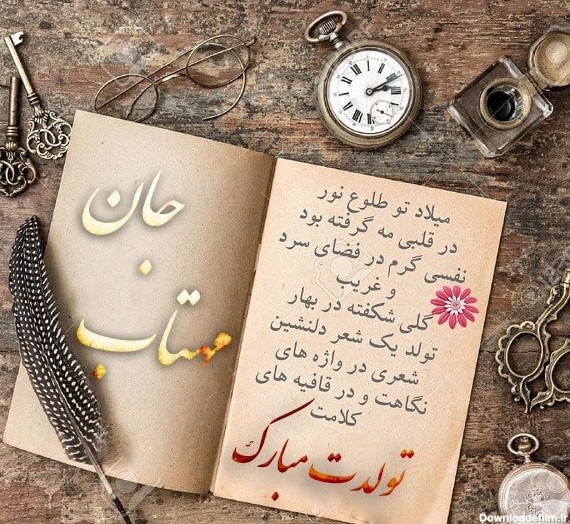 مهتاب
جان
میلاد تو طلوع نور
در قلبی مه گرفته بود
نفسی گرم در فضای سرد
و غریب
گلی شکفته در بهار
تولد یک شعر دلنشین
شعری در واژه های
نگاهت و در قافیه های
کلامت
تولدت مبارک
Downloadefilm.ir